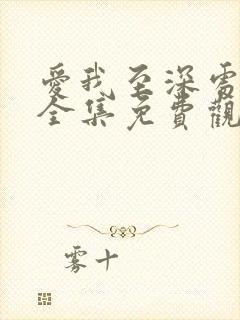 愛我至深電
全集免費觀
雾十